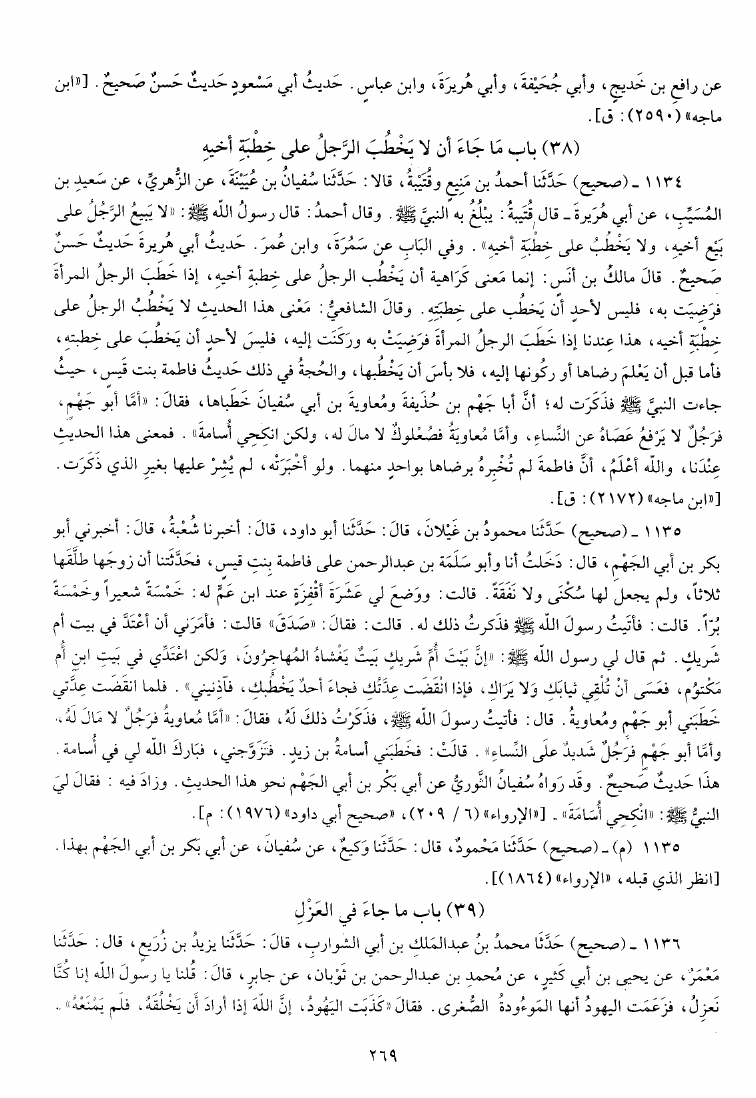 عن رافعِ بن خَديجٍ، وأبي جُحَيْفةَ، وأبي هُريرَةَ، وابن عباسٍ. حَديثُ أبي مَسْعودٍ حَديثٌ حَسنٌ صَحيحٌ. [«ابن
ماجه» (٢٥٩٠): ق].
(٣٨) باب مَا جَاءَ أن لا يَخْطُبَ الرَّجلُ على خِطْبَةِ أخيهِ
١١٣٤ ـ (صحيح) حَدَّثنَا أحمدُ بن مَنِيعٍ وقُتَيْبَةُ، قالا: حَدَّثنَا سُفيانُ بن عُيَيْنَةَ، عن الزُّهريِّ، عن سَعيدِ بن
المُسَيِّبِ، عن أبي هُرَيرةَ ـ قال قُتَيبةُ: يبْلُغُ به النبيَّ ﷺ. وقال أحمدُ: قال رسولُ الله ﷺ: «لا يَبيعُ الرَّجُلُ على
بَيْعِ أخيهِ، ولا يَخْطُبُ على خِطْبَةِ أخيهِ». وفي البَابِ عن سَمُرَةَ، وابن عُمرَ. حَديثُ أبي هُريرةَ حَديثٌ حَسنٌ
صَحيحٌ. قالَ مالكُ بن أنَسٍ: إنما مَعنى كَرَاهيةِ أن يَخْطُب الرجلُ على خِطبةِ أخيهِ، إذا خَطَبَ الرجلُ المرأةَ
فرَضِيَت به، فليس لأحدٍ أن يَخطُب على خِطبَتِهِ. وقالَ الشافعيُّ: مَعْنى هذا الحديثِ لا يَخْطُبُ الرجلُ على
خِطْبَةِ أخيه، هذا عِندنا إذا خَطَبَ الرجلُ المرأةَ فرَضِيَتْ به ورَكَنَت إليه، فليسَ لأحدٍ أن يَخطُبَ على خِطبتهِ،
فأما قبل أن يَعْلمَ رضاها أو ركُونها إليه، فلا بأسَ أن يَخْطُبها، والحُجةُ في ذلك حَديثُ فاطمةَ بنت قَيسٍ، حيثُ
جاءت النبيَّ ﷺ فذَكَرَت له؛ أنَّ أبا جَهْمِ بن حُذَيفةَ ومُعاويةَ بن أبي سُفيانَ خَطَباها، فقالَ: «أمَّا أبو جَهْمٍ،
فرَجُلٌ لا يَرْفعُ عَصَاهُ عن النِّساءِ، وأمَّا مُعاويَةُ فصُعْلوكٌ لا مالَ له، ولكن انكِحِي أُسامةَ». فمعنى هذا الحديثِ
عِنْدَنا، والله أعْلَمُ، أنَّ فاطمةَ لم تُخْبِرهُ برضاها بواحدٍ منهما. ولو أخْبَرَتْه، لم يُشِرْ عليها بغيرِ الذي ذَكَرَت.
[«ابن ماجه» (٢١٧٢): ق].
١١٣٥ ـ (صحيح) حَدَّثنَا محمودُ بن غَيْلانَ، قالَ: حَدَّثنا أبو داود، قالَ: أخبرنا شُعْبةُ، قالَ: أخبرني أبو
بكرِ بن أبي الجَهْمِ، قال: دَخَلتُ أنا وأبو سَلَمَة بن عبدالرحمن على فاطمةَ بِنتِ قيسٍ، فحَدَّثَتنا أن زوجَها طلَّقَها
ثلاثاً، ولم يجعل لها سُكْنَى ولا نَفَقَةً. قالت: ووَضعَ لي عَشَرَةَ أقْفِزَةٍ عند ابن عَمٍّ له: خَمْسَةً شعيراً وخَمْسَةً
بُرّاً. قالت: فأتَيتُ رسولَ الله ﷺ فذكرتُ ذلك له. قالت: فقالَ: «صَدَقَ» قالت: فأمَرَني أن أعْتَدَّ في بيت أم
شَريكٍ. ثم قال لي رسول الله ﷺ: «إنَّ بَيْتَ أمِّ شَريكٍ بَيتٌ يَغْشاهُ المُهاجِرُونَ، وَلكن اعْتَدِّي في بَيتِ ابنِ أُم
مَكتوُم، فعَسَى أنْ تُلْقِي ثيابَكِ وَلا يَرَاكِ، فإذا انْقَضَت عِدَّتُكِ فجاءَ أحدٌ يَخْطُبكِ، فآذِنيني». فلما انقَضَت عِدَّتي
خَطَبَني أبو جَهْمٍ ومُعاويةُ. قال: فأتيتُ رسولَ الله ﷺ، فذَكَرْتُ ذلكَ لَهُ، فقالَ: «أمَّا مُعاويةُ فرَجُلٌ لا مَالَ لَهُ،
وأمَّا أبو جَهْمٍ فرَجُلٌ شَديدٌ علَى النِّساءِ». قالَتْ: فخَطَبَني أسامةُ بن زيدٍ. فتَزَوَّجني، فبَارَكَ الله لي في أُسامة.
هذَا حَديثٌ صَحيحٌ. وقد رَواهُ سُفيانُ الثَّوريُّ عن أبي بَكْرِ بن أبي الجَهْمِ نحو هذا الحديثِ. وزادَ فيه: فقالَ ليَ
النبيُّ ﷺ: «انْكِحِي أُسَامَةَ». [«الإرواء» (٦/ ٢٠٩)، «صحيح أبي داود» (١٩٧٦): م].
١١٣٥ (م) ـ (صحيح) حَدَّثنَا مَحْمودٌ، قال: حَدَّثنَا وَكيعٌ، عن سُفيانَ، عن أبي بَكرِ بن أبي الجَهْمِ بهذا.
[انظر الذي قبله، «الإرواء» (١٨٦٤)].
(٣٩) باب ما جاءَ في العَزْلِ
١١٣٦ ـ (صحيح) حَدَّثنا محمدُ بنُ عبدالمَلكِ بن أبي الشواربِ، قالَ: حَدَّثنَا يزيدُ بن زُرَيعٍ، قال: حَدَّثنَا
مَعْمَرٌ، عن يحيى بن أبي كَثيرٍ، عن مُحمدِ بن عبدالرحمن بن ثَوْبانَ، عن جابرٍ، قالَ: قُلنا يا رسولَ الله إنا كُنَّا
نَعزِلُ، فزَعَمَت اليهودُ أنها المَوءُودةُ الصُّغرى. فقالَ «كَذَبَت اليَهُودُ، إنَّ اللهَ إذا أرادَ أن يَخْلُقَهُ، فلَم يَمْنَعْهُ».
٢٦٩